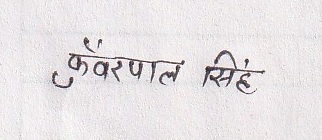 कुँवरपाल सिंह